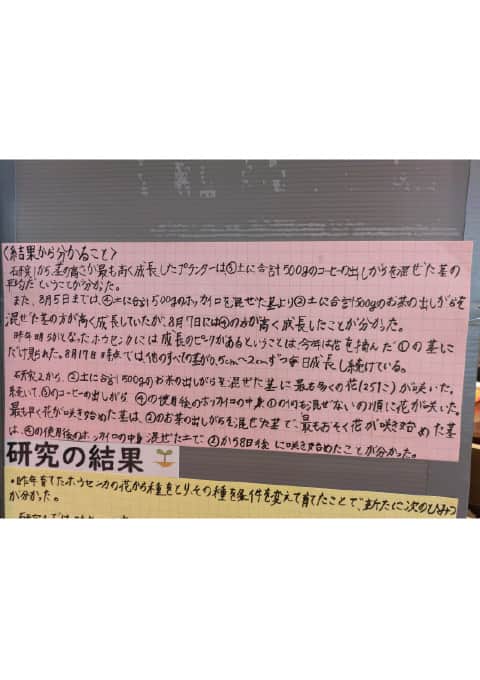 〈結果から分かること〉
研究1から、茎の高さが最も高く成長したプランターは③土に合計500gのコーヒーの出しがらを混ぜた茎の
平均だということが分かった。
また、8月5日までは、④土に合計500gのホッカイロを混ぜた茎より②土に合計500gのお茶の出しがらを
混ぜた茎の方が高く成長していたが、8月7日には④の方が高く成長したことが分かった。
昨年明らかとなったホウセンカには成長のピークがあるということは、今年は花を摘んだ①の茎に
だけ見られた。8月17日時点では、他のすべての茎が0.5cm〜2cmずつ毎日成長し続けている。
研究2から、②土に合計500gのお茶の出しがらを混ぜた茎に最も多くの花(25こ)が咲いた。
続いて、③のコーヒーの出しがら ④の使用後のホッカイロの中身 ①の何も混ぜないの順に花が咲いた。
最も早く花が咲き始めた茎は、②のお茶の出しがらを混ぜた茎で、最もおそく花が咲き始めた茎
は、④の使用後のホッカイロの中身 混ぜた土で、②から8日後に咲き始めたことが分かった。
研究の結果
・昨年育てたホウセンカの花から種をとり、その種を条件を変えて育てたことで、新たに次のひみつ
が分かった。